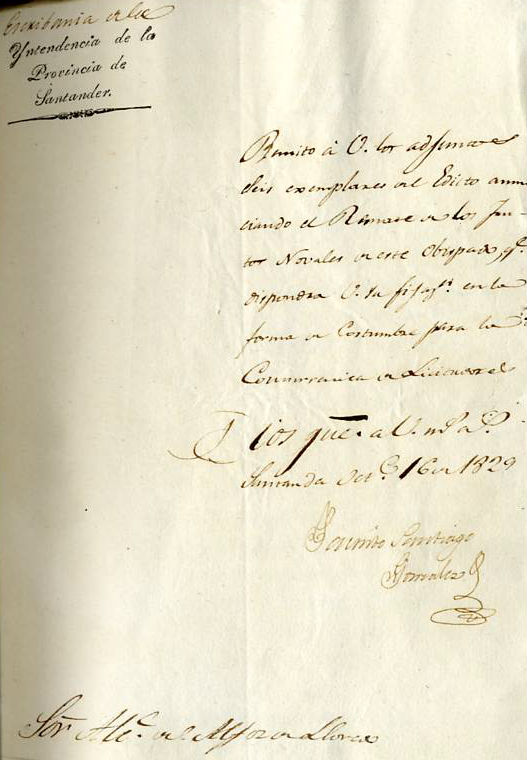 Escribania de la
Yntendencia de la
Provincia de
Santander.
Remito á V. los adjuntos
seis exemplares del Edicto anun
ciando el Remate de los fru
tos Novales de este Obispado, qe.
dispondra V. su fijazn. en la
forma de Costumbre para la
Concurrencia de Licitadores
Dios gue. a V. ms. as.
Santander Oct.e 16 de 1829
Santiago
Gonzalez
Sor. Alc.e del Alfoz de Lloredo